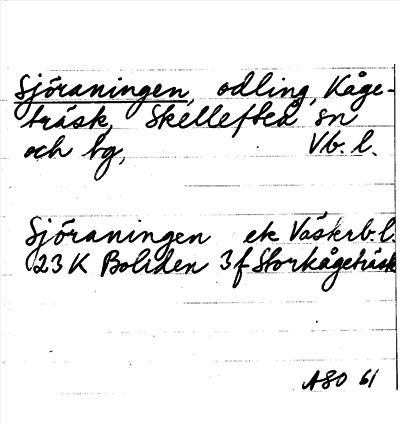 Sjöraningen, odling, Kåge-
träsk, Skellefteå sn
och bg, Vb. l.
Sjöraningen ek Västerb.l.
23 K Boliden 3 f Storkågeträsk
ASO 61